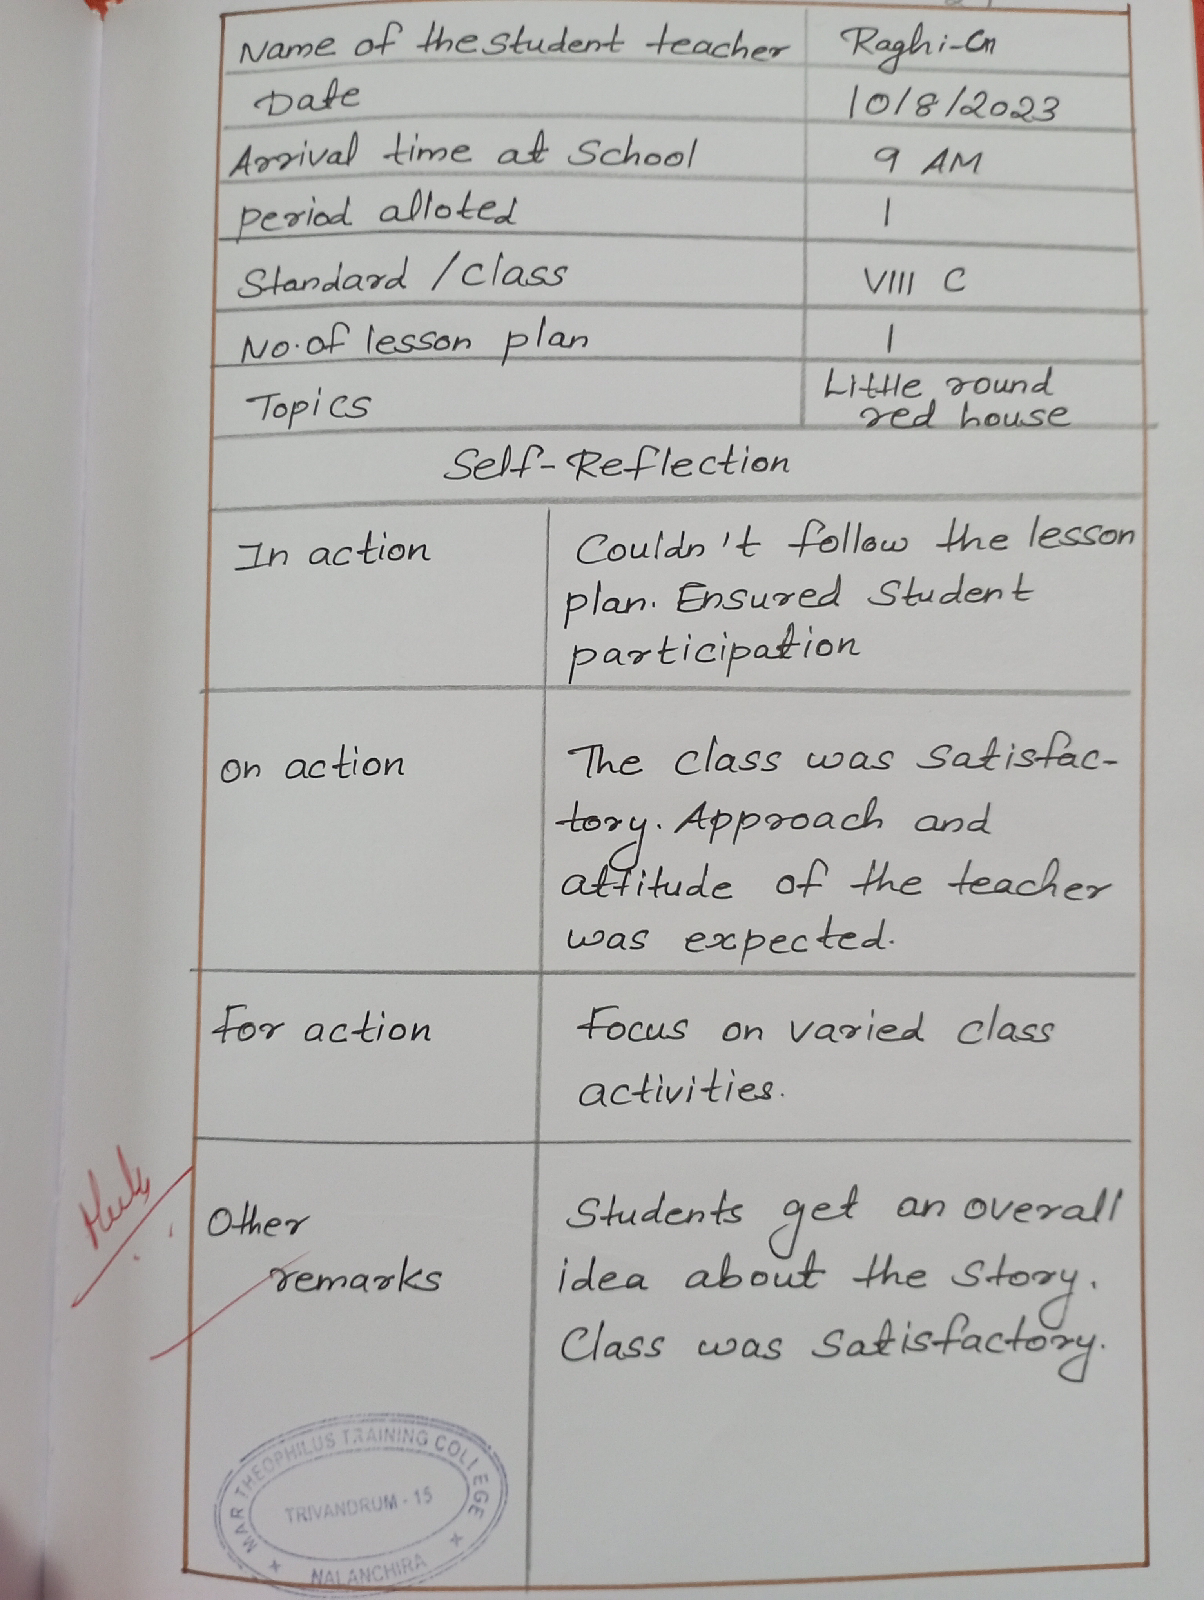 Name of the student teacher Raghi-Cn
Date 10/8/2023
Arrival time at School 9 AM
period alloted 1
Standard / class VIII C
No. of lesson plan 1
Topics Little round
red house
Self-Reflection
In action Couldn't follow the lesson
plan. Ensured Student
participation
On action The class was satisfac-
tory. Approach and
attitude of the teacher
was expected.
For action Focus on varied class
activities.
Other Students get an overall
remarks idea about the story.
Class was satisfactory.
MAR THEOPHILUS TRAINING COLLEGE
TRIVANDRUM - 15
NALANCHIRA